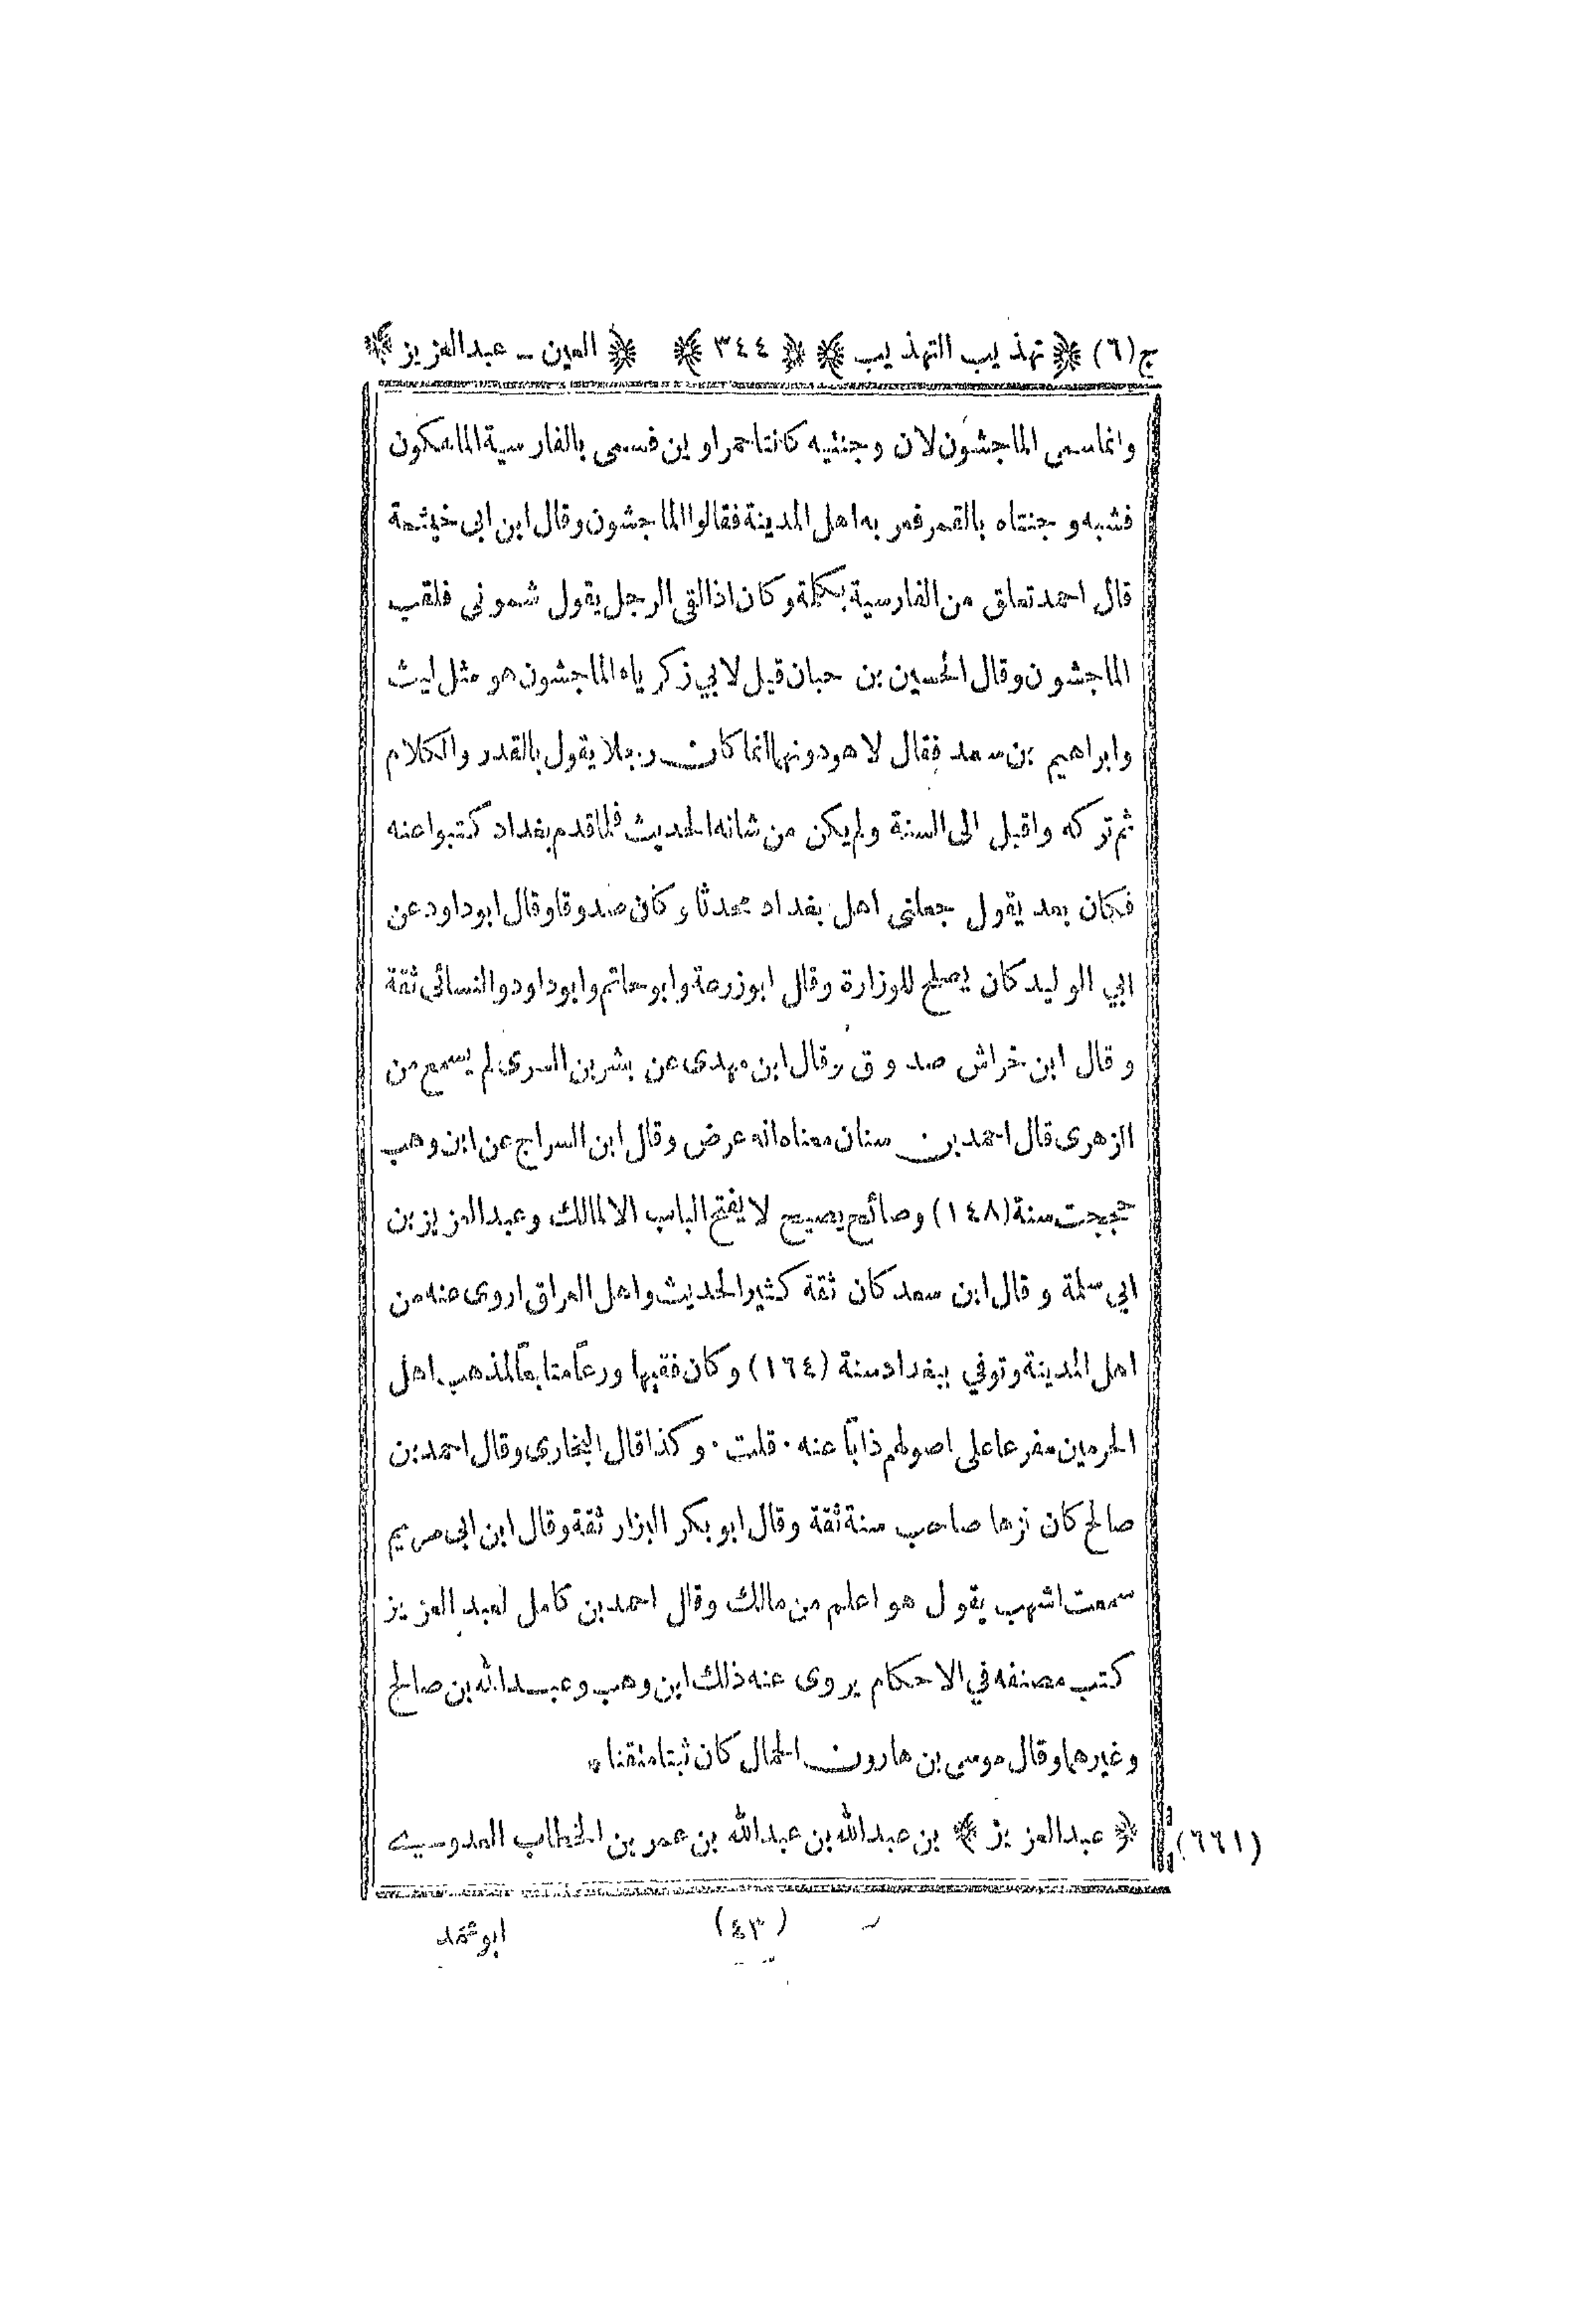 ج(٦) ﴿ تهذيب التهذيب ﴾ ﴿ ٣٤٤ ﴾ ﴿ العين - عبدالعزيز ﴾
وانماسمي الماجشون لان وجنتيه كانتا حمراوين فسمى بالفارسية الماهكون
فشبه وجنتاه بالقمر فمر به اهل المدينة فقالوا الماجشون وقال ابن ابى خيثمة
قال احمد تعلق من الفارسية بكلمة وكان اذا لقي الرجل يقول شموني فلقب
الماجشون وقال الحسين بن حبان قيل لابي زكرياه الماجشون هو مثل ليث
وابراهيم بن سعد فقال لا هو دونهما انما كان رجلا يقول بالقدر والكلام
ثم تركه واقبل الى السنة ولم يكن من شانه الحديث فلما قدم بغداد كتبوا عنه
فكان بعد يقول جعلنى اهل بغداد محدثا وكان صدوقا وقال ابوداود عن
ابي الوليد كان يصلح للوزارة وقال ابوزرعة وابوحاتم وابوداود والنسائى ثقة
وقال ابن خراش صدوق وقال ابن مهدى عن بشر بن السرى لم يسمع من
الزهرى قال احمد بن سنان معناه انه عرض وقال ابن السراج عن ابن وهب
حججت سنة (١٤٨) وصائح يصيح لا يفتح الباب الا لمالك وعبدالعزيز بن
ابي سلمة وقال ابن سعد كان ثقة كثير الحديث واهل العراق اروى عنه من
اهل المدينة وتوفي ببغداد سنة (١٦٤) وكان فقيها ورعاً متابعاً لمذهب اهل
الحرمين مفرعا على اصولهم ذاباً عنه · قلت · وكذا قال البخارى وقال احمد بن
صالح كان نزها صاحب سنة ثقة وقال ابو بكر البزار ثقة وقال ابن ابى مريم
سمعت اشهب يقول هو اعلم من مالك وقال احمد بن كامل لعبد العزيز
كتب مصنفه في الاحكام يروى عنه ذلك ابن وهب وعبدالله بن صالح
وغيرهما وقال موسى بن هارون الحمال كان ثبتا متقنا *
(٦٦١) ﴿ عبدالعزيز ﴾ بن عبدالله بن عبدالله بن عمر بن الخطاب العدوي
(٤٣) ابو محمد